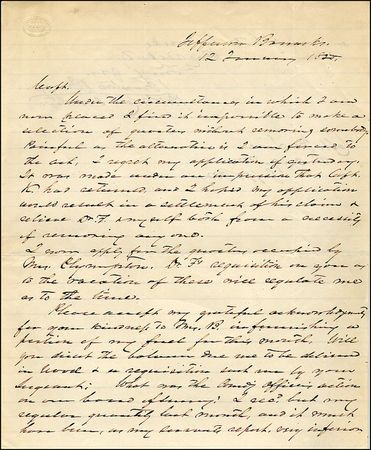 Jefferson Barracks
12 January 18
Capt.
Under the circumstances in which I am
now placed I find it impossible to make a
selection of quarters without removing somebody.
Painful as the alternative is I am forced to
the act. I regret my application of yesterday.
It was made under an impression that Capt.
K. had returned, and I hoped my application
would result in a settlement of his claims &
relieve Dr. F. & myself both from a necessity
of removing any one.
I now apply for the quarters occupied by
Mrs. Clympton. Dr. F's requisition on you as
to the vacation of these will regulate me
as to the time.
Please accept my grateful acknowledgments
for your kindness to Mrs. B. in furnishing a
portion of my fuel for this month. Will
you direct the balance due me to be delivered
in wood & a requisition sent me by your
Sergeant; What was the Comdg officers action
on our board of survey? I recd. but my
regular quantity last month, and it must
have been, as my servants report, very inferior